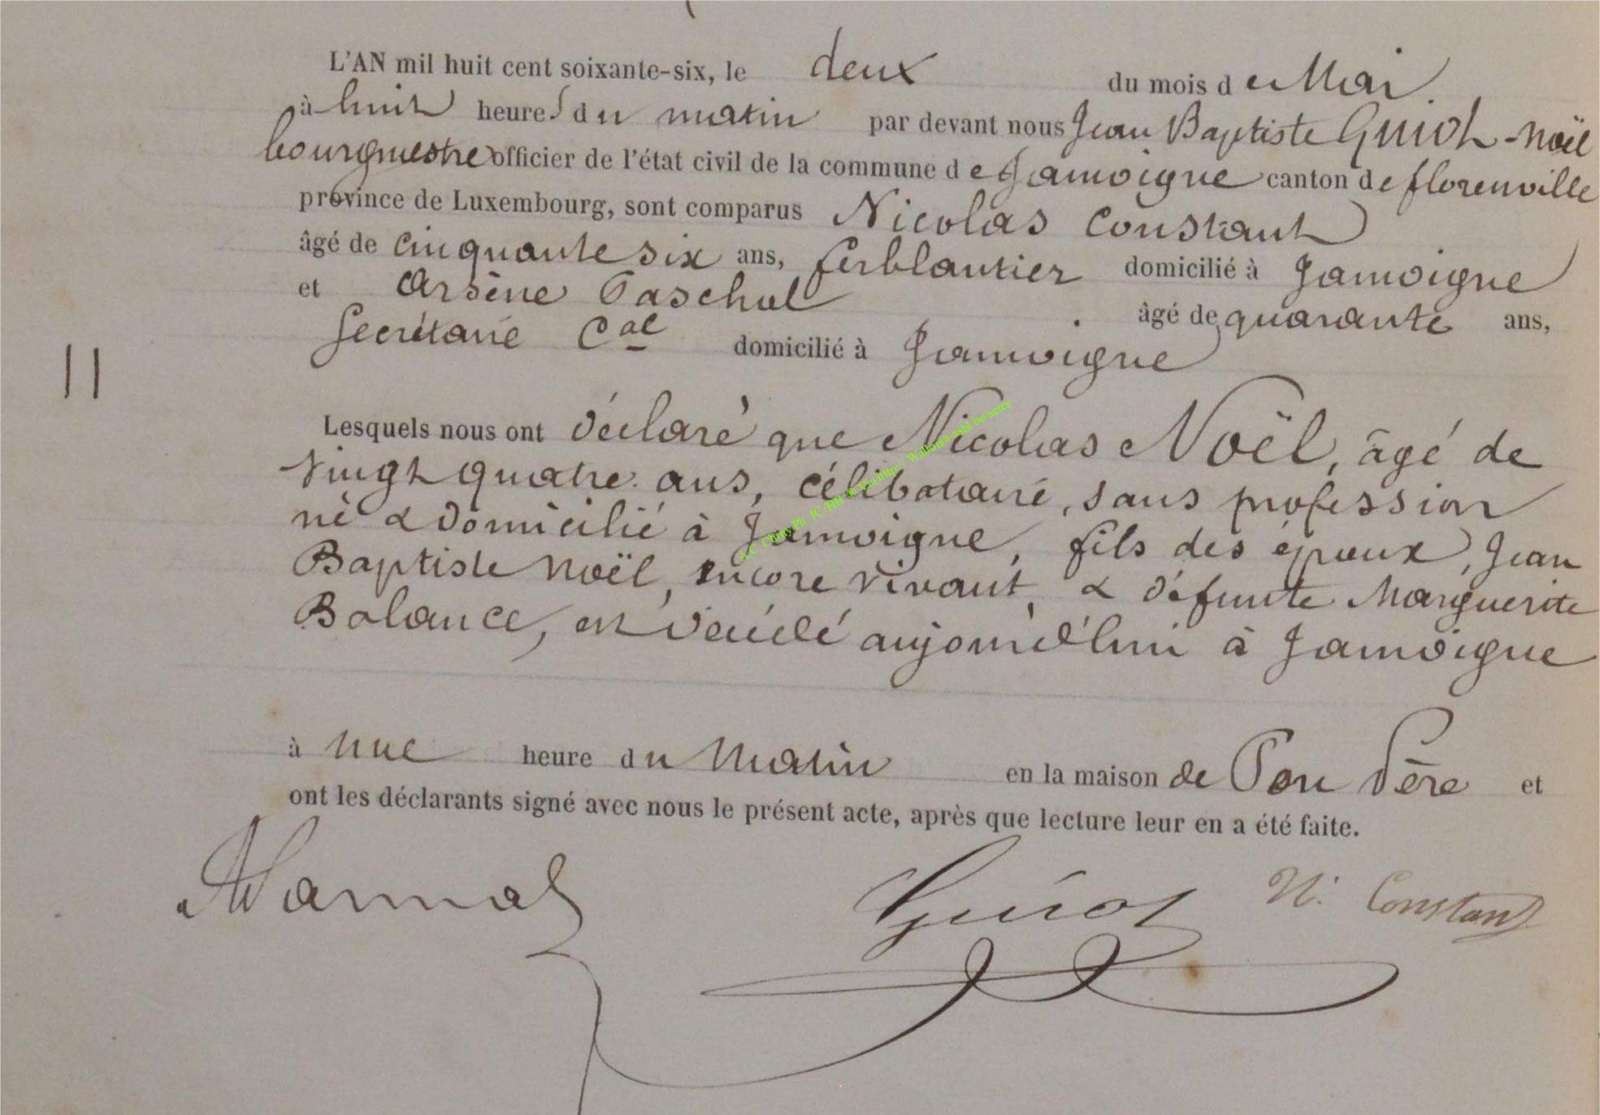 L'AN mil huit cent soixante-six, le deux du mois de Mai
à huit heures du matin par devant nous Jean Baptiste Guiot-Noël
bourgmestre officier de l'état civil de la commune de Jamoigne canton de florenville
province de Luxembourg, sont comparus Nicolas Constant
âgé de cinquante six ans, ferblantier domicilié à Jamoigne
et Arsène Paschal âgé de quarante ans,
Secrétaire Cal domicilié à Jamoigne
11
Lesquels nous ont déclaré que Nicolas Noël, âgé de
vingt quatre ans, célibataire, sans profession
né & domicilié à Jamoigne, fils des époux, Jean
Baptiste Noël, encore vivant, & défunte Marguerite
Balance, est décédé aujourd'hui à Jamoigne
à une heure du matin en la maison de Son Père et
ont les déclarants signé avec nous le présent acte, après que lecture leur en a été faite.
Guiot N. Constant